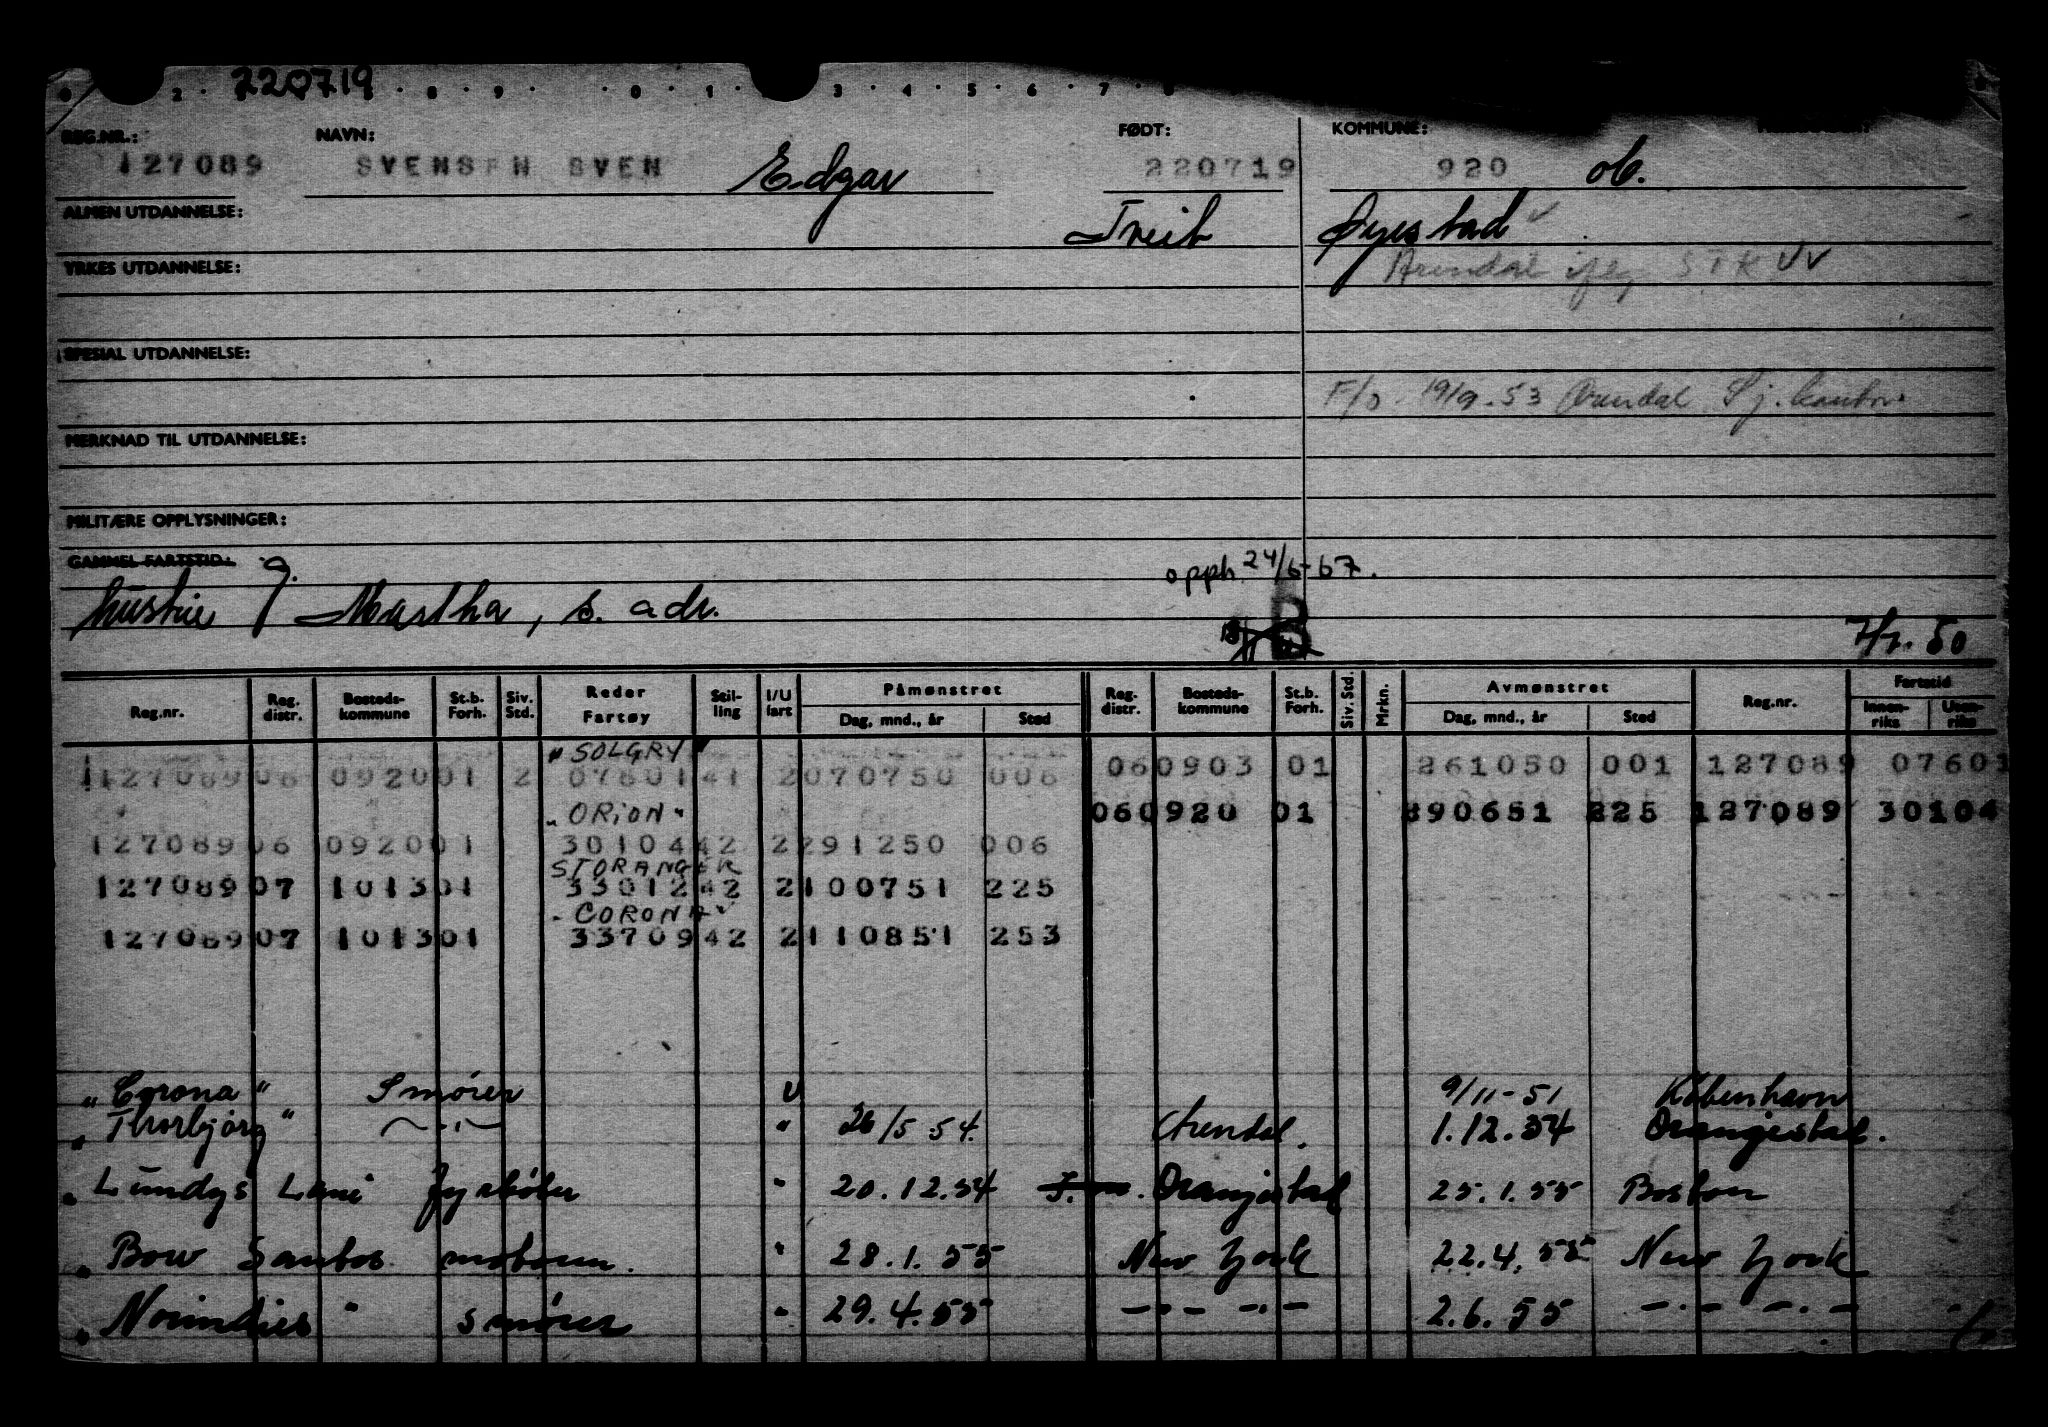 220719
REG.NR.: NAVN: FØDT: KOMMUNE:
127089 SVENSEN SVEN Edgar 220719 920 ob.
ALMEN UTDANNELSE: Øyestad
YRKES UTDANNELSE: Arendal STK
SPESIAL UTDANNELSE:
F/O 19/9-53 Arendal Sj.kontor
MERKNAD TIL UTDANNELSE:
MILITÆRE OPPLYSNINGER:
GAMMEL FARTSTID: g. opph 24/6-67.
hustru Martha, s. adr.
B
7/7.50
Reg.nr. Reg. distr. Bosteds-kommune St.b. Forh. Siv. Std. Reder Fartøy Stil-ling I/U fart Påmønstret Dag, mnd., år Sted Reg. distr. Bosteds-kommune St.b. Forh. Siv. Std. Mrkn. Avmønstret Dag, mnd., år Sted Reg.nr. Fartstid Innen-riks Uten-riks
"SOLGRY"
127089 06 0920 01 2 07601 41 2 070750 006 06 0903 01 261050 001 127089 07601
"ORION" 06 0920 01 290651 225 127089 30104
127089 06 0920 01 30104 42 2 291250 006
STORANGER
127089 07 1013 01 33012 42 2 100751 225
"CORONA"
127089 07 1013 01 33709 42 2 110851 253
"Corona" Smører U 9/11-51 København
"Thorbjørg" — " — " 26/5 54. Arendal. 1.12.54 Oranjestad.
" Lundys Lane Fyrbøter " 20.12.54 Oranjestad 25.1.55 Boston
" Bow Santos motorm. " 28.1.55 New York 22.4.55 New York
" Norindies " smører " 29.4.55 — . — — . — 2.6.55 — . — — . —